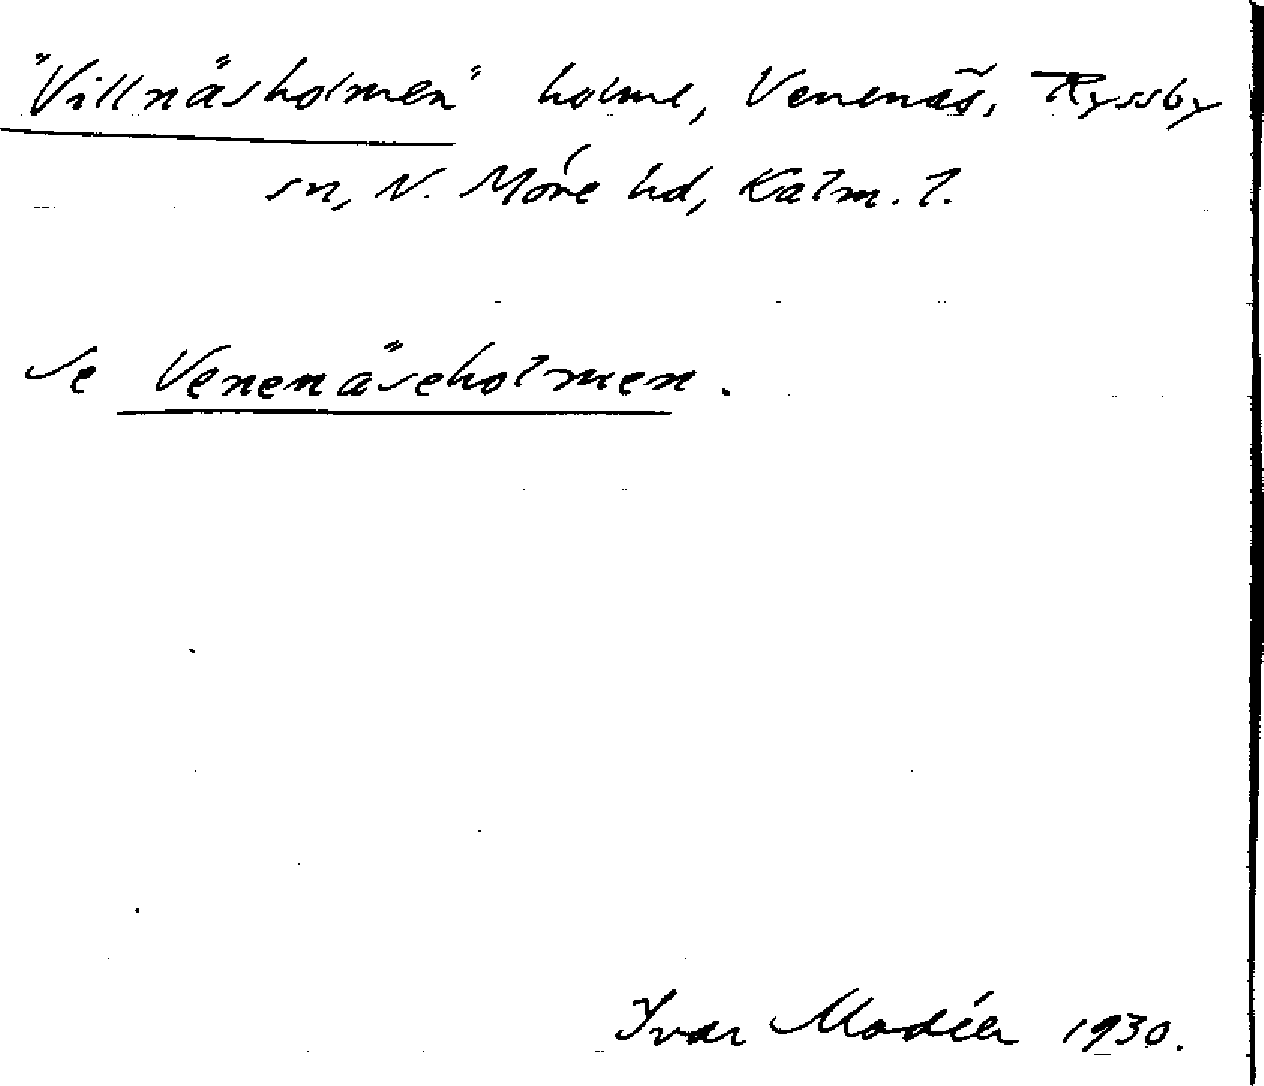 "Villnäsholmen" holme, Venenäs, Ryssby
sn, N. Möre hd, Kalm. l.
Se Venenäseholmen.
Ivar Modéer 1930.